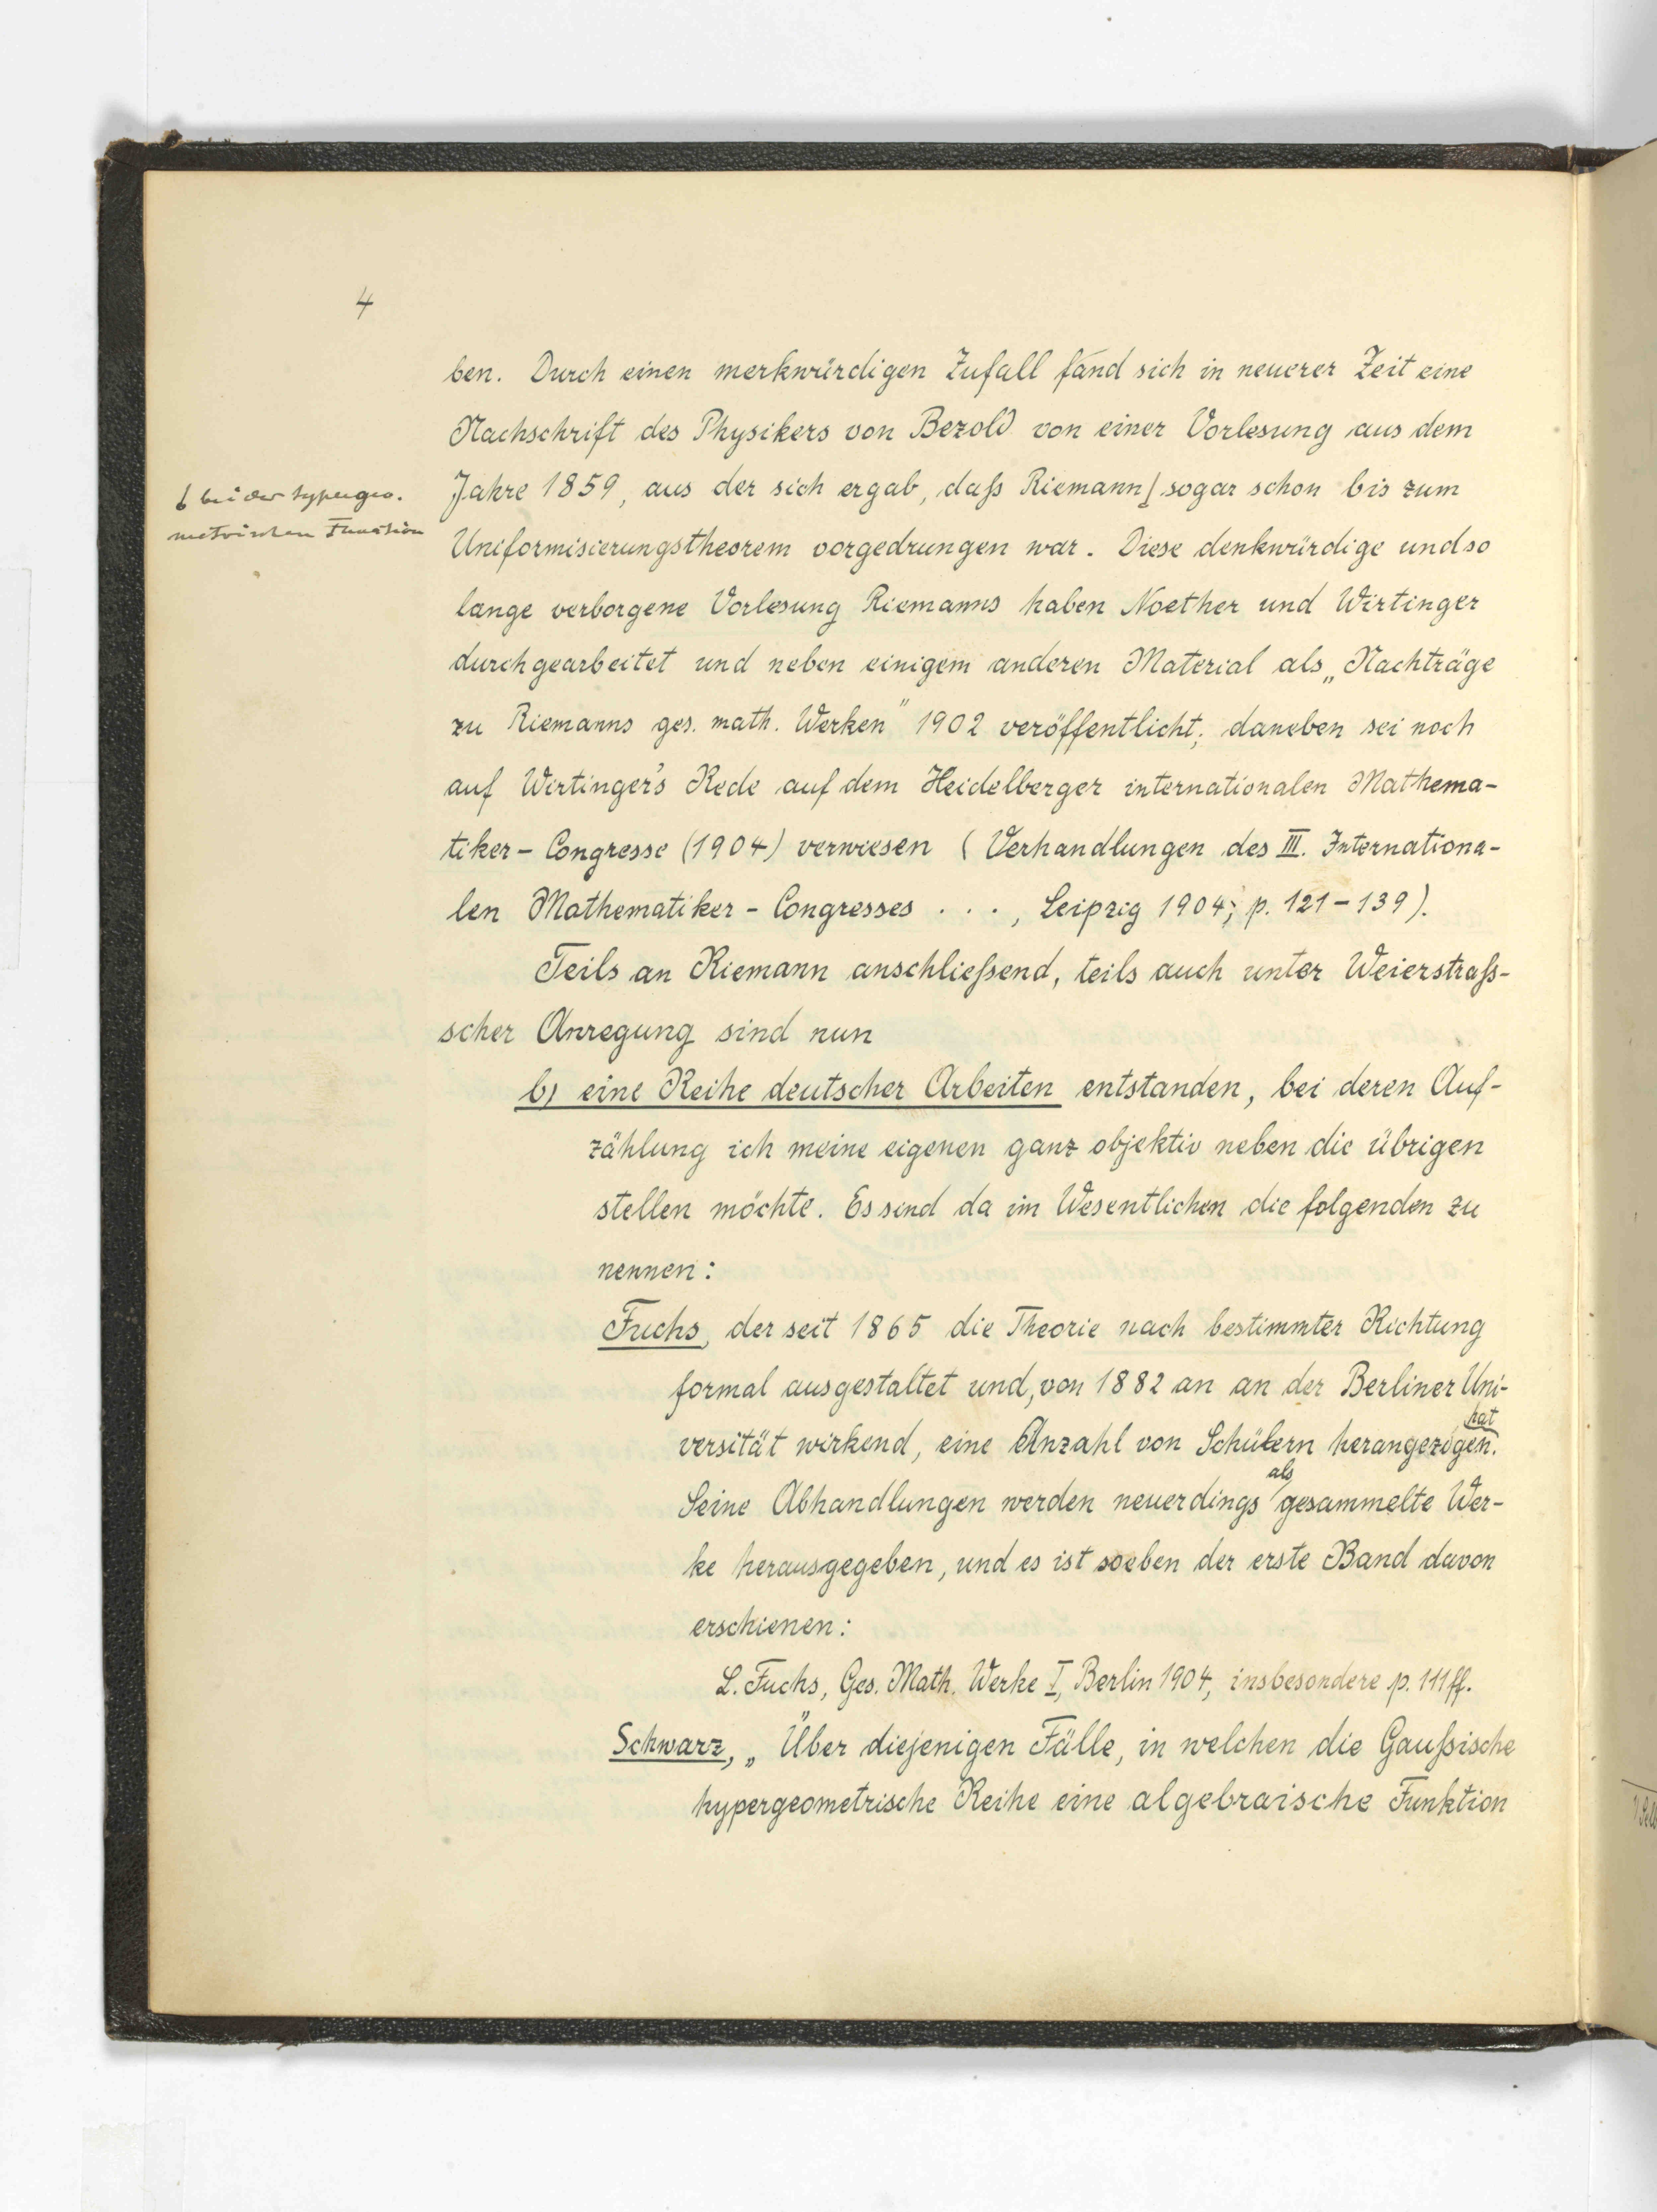 4
ben. Durch einen merkwürdigen Zufall fand sich in neuerer Zeit eine
Nachschrift des Physikers von Bezold von einer Vorlesung aus dem
bei der hypergeo-
metrischen Funktion
Jahre 1859, aus der sich ergab, daß Riemann sogar schon bis zum
Uniformisierungstheorem vorgedrungen war. Diese denkwürdige und so
lange verborgene Vorlesung Riemanns haben Noether und Wirtinger
durchgearbeitet und neben einigem anderen Material als „Nachträge
zu Riemanns ges. math. Werken" 1902 veröffentlicht; daneben sei noch
auf Wirtinger's Rede auf dem Heidelberger internationalen Mathema-
tiker-Congresse (1904) verwiesen (Verhandlungen des III. Internationa-
len Mathematiker-Congresses . . . , Leipzig 1904; p. 121-139).
Teils an Riemann anschließend, teils auch unter Weierstraß-
scher Anregung sind nun
b) eine Reihe deutscher Arbeiten entstanden, bei deren Auf-
zählung ich meine eigenen ganz objektiv neben die übrigen
stellen möchte. Es sind da im Wesentlichen die folgenden zu
nennen:
Fuchs, der seit 1865 die Theorie nach bestimmter Richtung
formal ausgestaltet und, von 1882 an an der Berliner Uni-
versität wirkend, eine Anzahl von Schülern herangezogen hat.
Seine Abhandlungen werden neuerdings als gesammelte Wer-
ke herausgegeben, und es ist soeben der erste Band davon
erschienen:
L. Fuchs, Ges. Math. Werke I, Berlin 1904, insbesondere p. 111 ff.
Schwarz, „Über diejenigen Fälle, in welchen die Gaußische
hypergeometrische Reihe eine algebraische Funktion